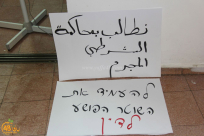 نطالب بمحاكمة
الشرطي
المجرم
להעמיד את
השוטר הפושע
לדין